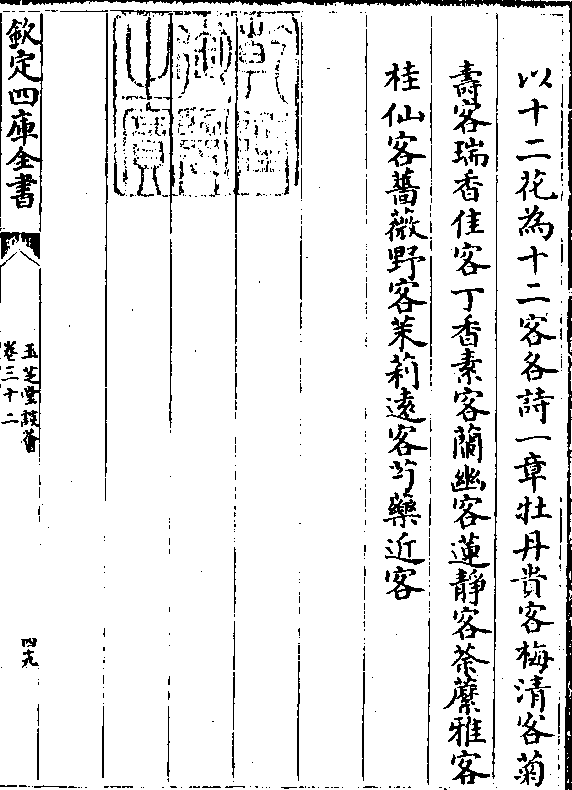 以十二花為十二客各詩一章牡丹貴客梅清客菊
壽客瑞香佳客丁香素客蘭幽客蓮靜客荼蘼雅客
桂仙客薔薇野客茉莉遠客芍藥近客
乾隆御覽之寶
欽定四庫全書
玉芝堂談薈
卷三十二
四九